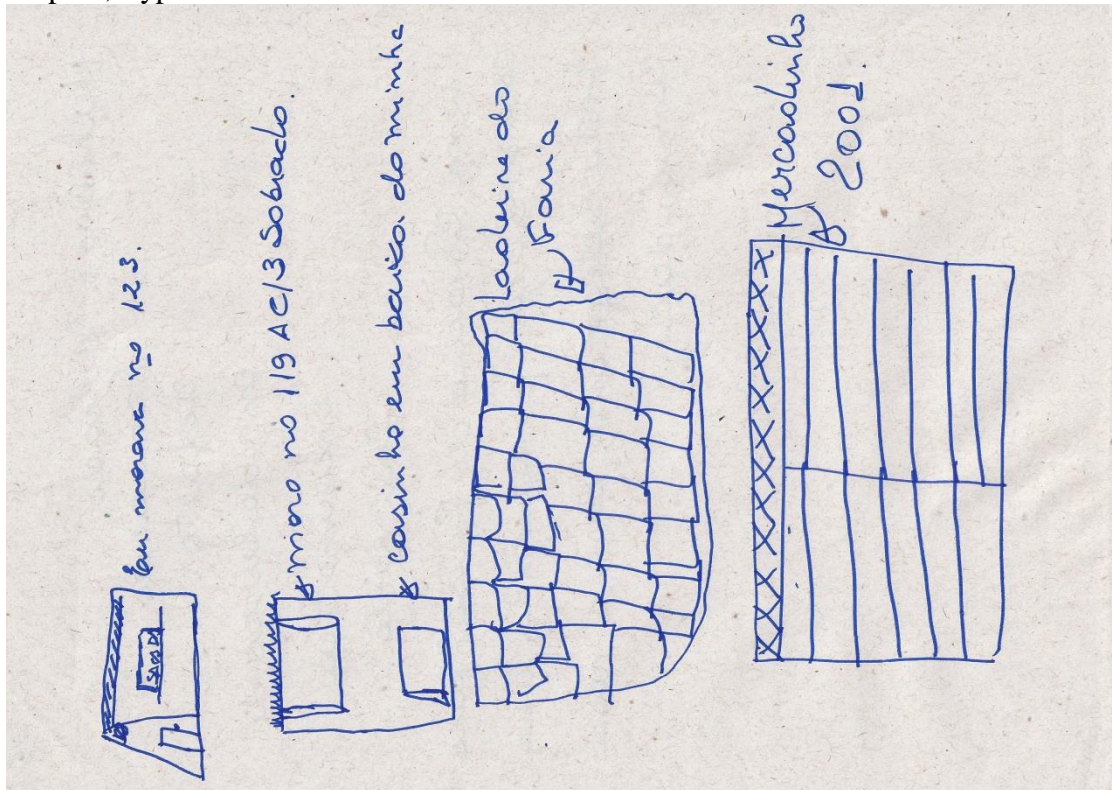 Eu morava nº 123.
moro nº 119 AC/3 Sobrado.
casinha em baixo da minha
Ladeira do
Faria
Mercadinho
2001.